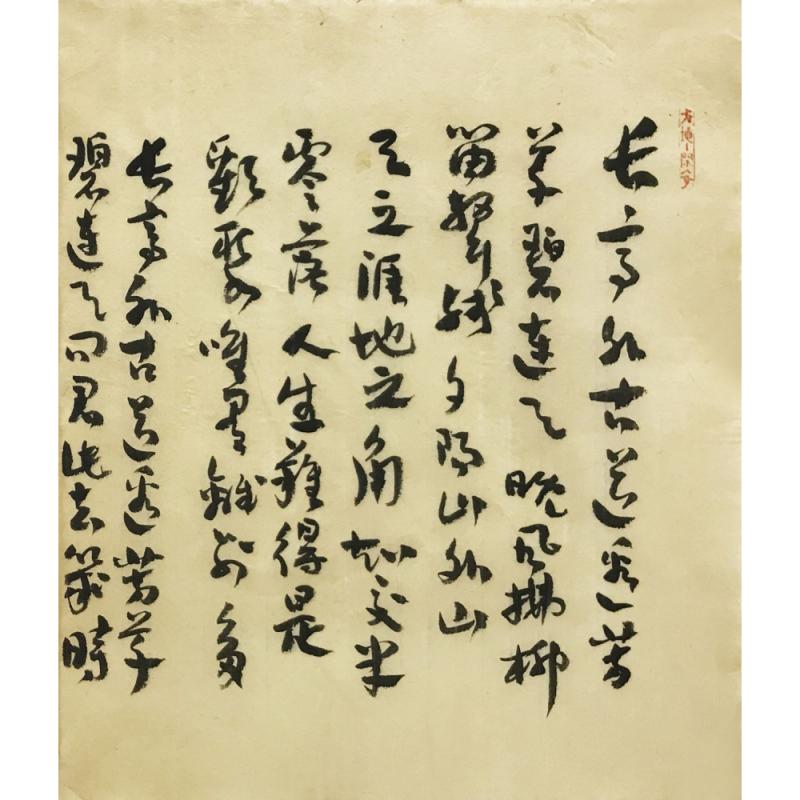 长亭外古道邊芳
草碧連天晚風拂柳
笛聲殘夕陽山外山
天之涯地之角知交半
零落人生難得是
歡聚唯有離别多
长亭外古道邊芳草
碧連天问君此去幾時